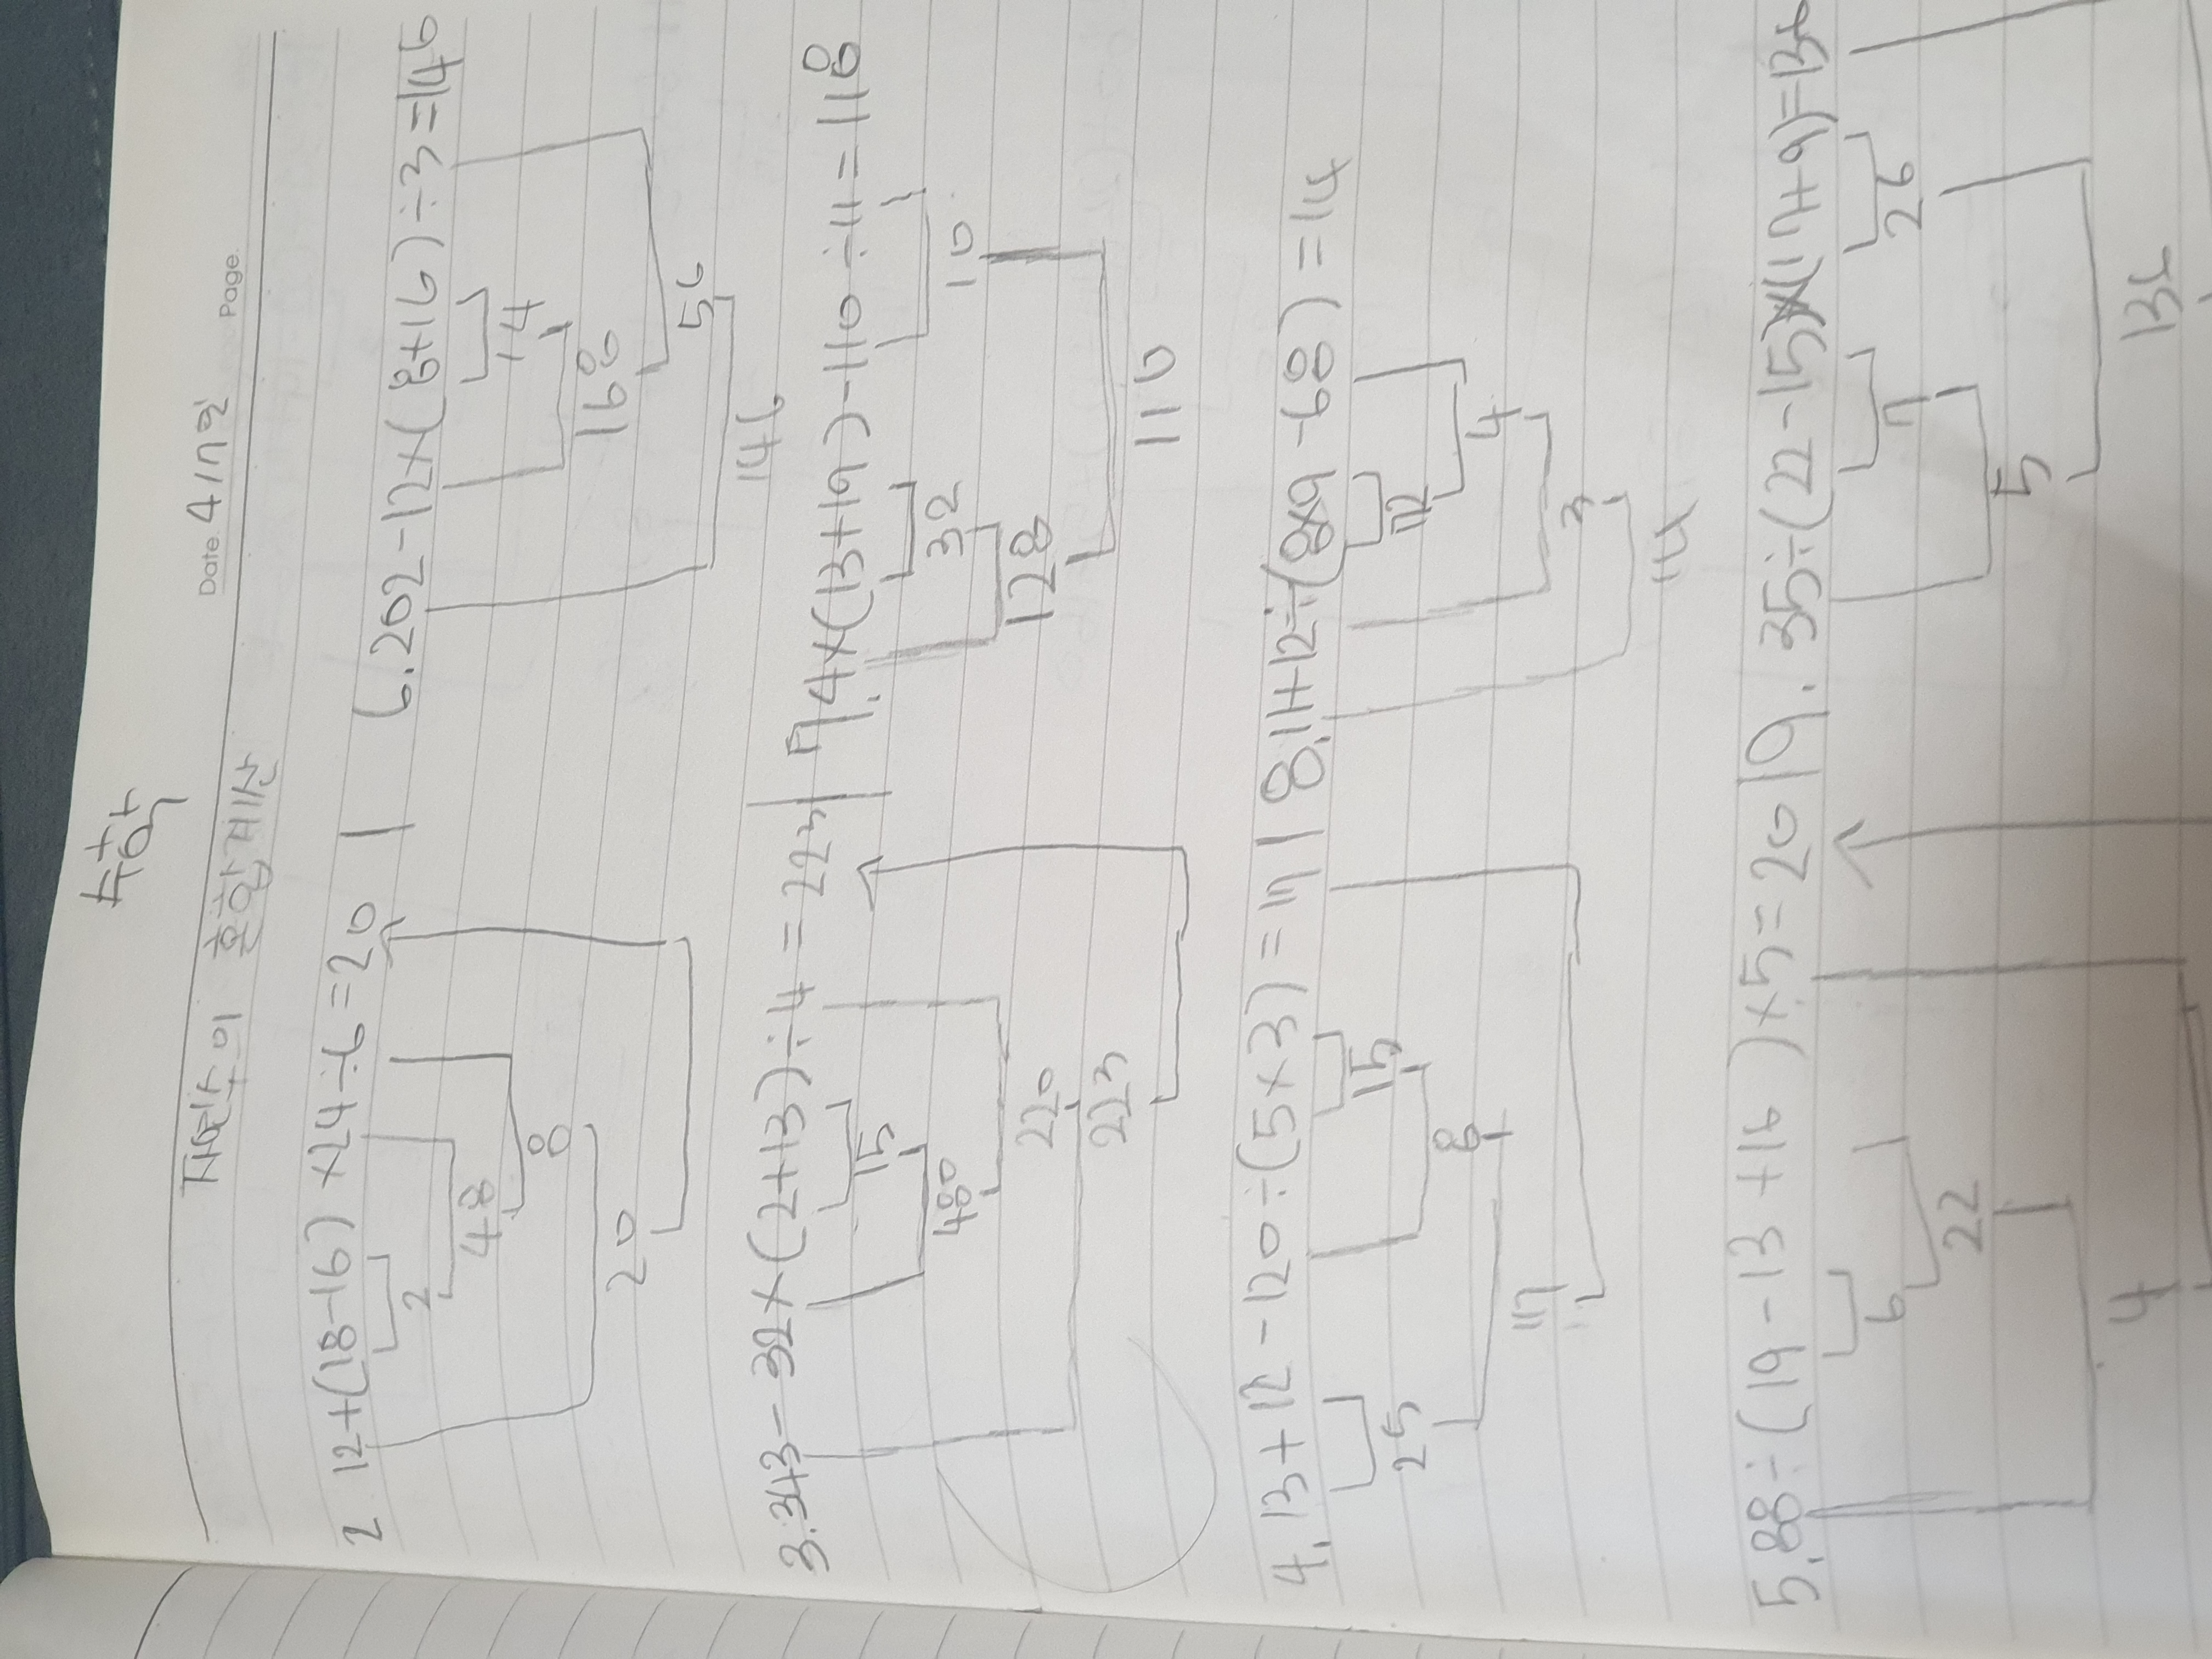 수학
자연수의 혼합계산
Date. 4/17일 Page.
2 12+(18-16)×24÷6=20
2
48
8
20
3. 343-32×(2+13)÷4=223
15
480
220
223
4. 13+12-120÷(5×3)=17
25 15
8
17
5. 88÷(19-13+16)×5=20
6
22
4
6. 202-12×(8+16)÷3=146
14
168
56
146
7. 4×(13+19)-110÷11=118
32 10
128
110
8. 11+12÷(8×9-68)=14
72
4
3
14
9. 35÷(22-15)×(17+9)=136
7 26
5
136